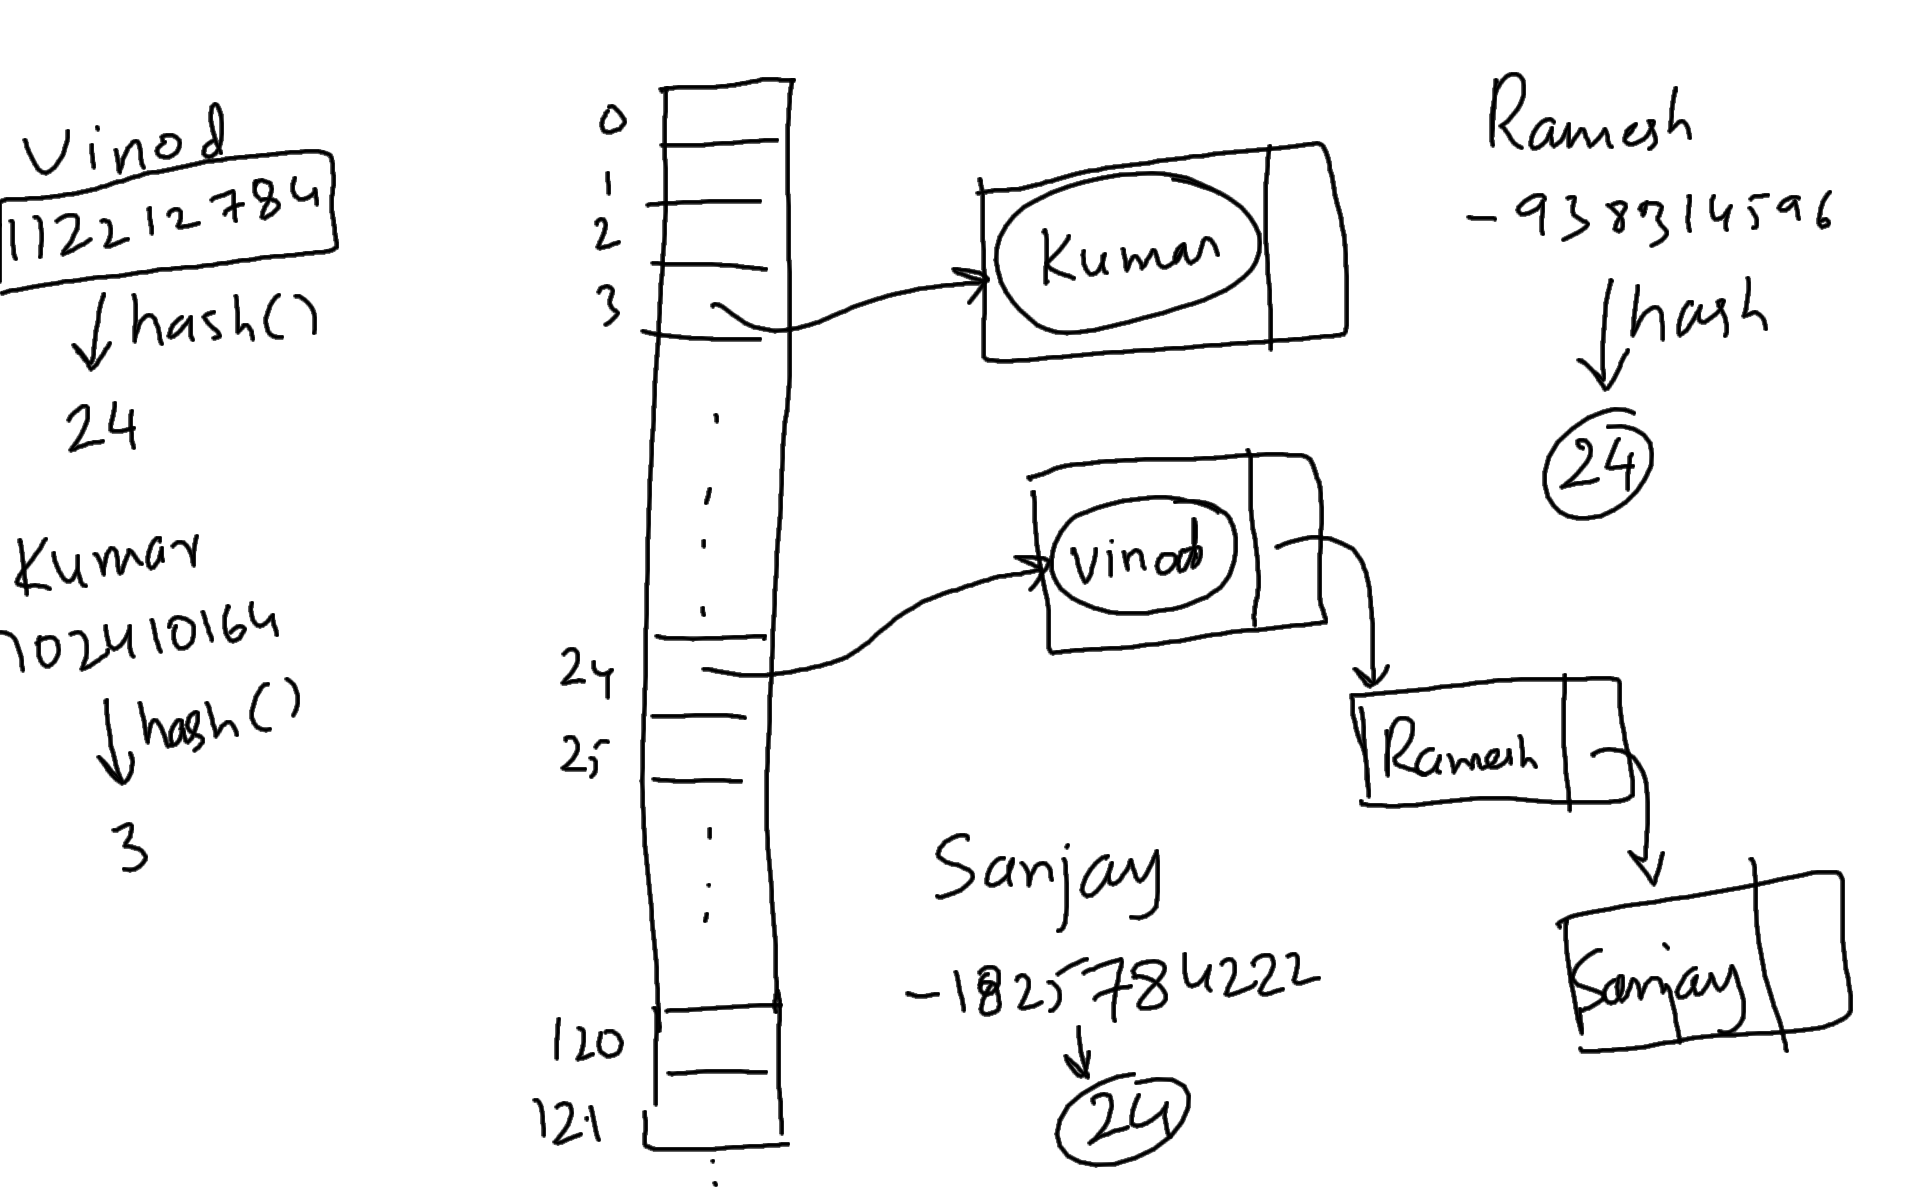 Vinod
112212784
hash()
24
Kumar
102410164
hash()
3
0
1
2
3
24
25
120
121
Kumar
Vinod
Ramesh
Sanjay
Ramesh
-938314596
hash
24
Sanjay
-1825784222
24